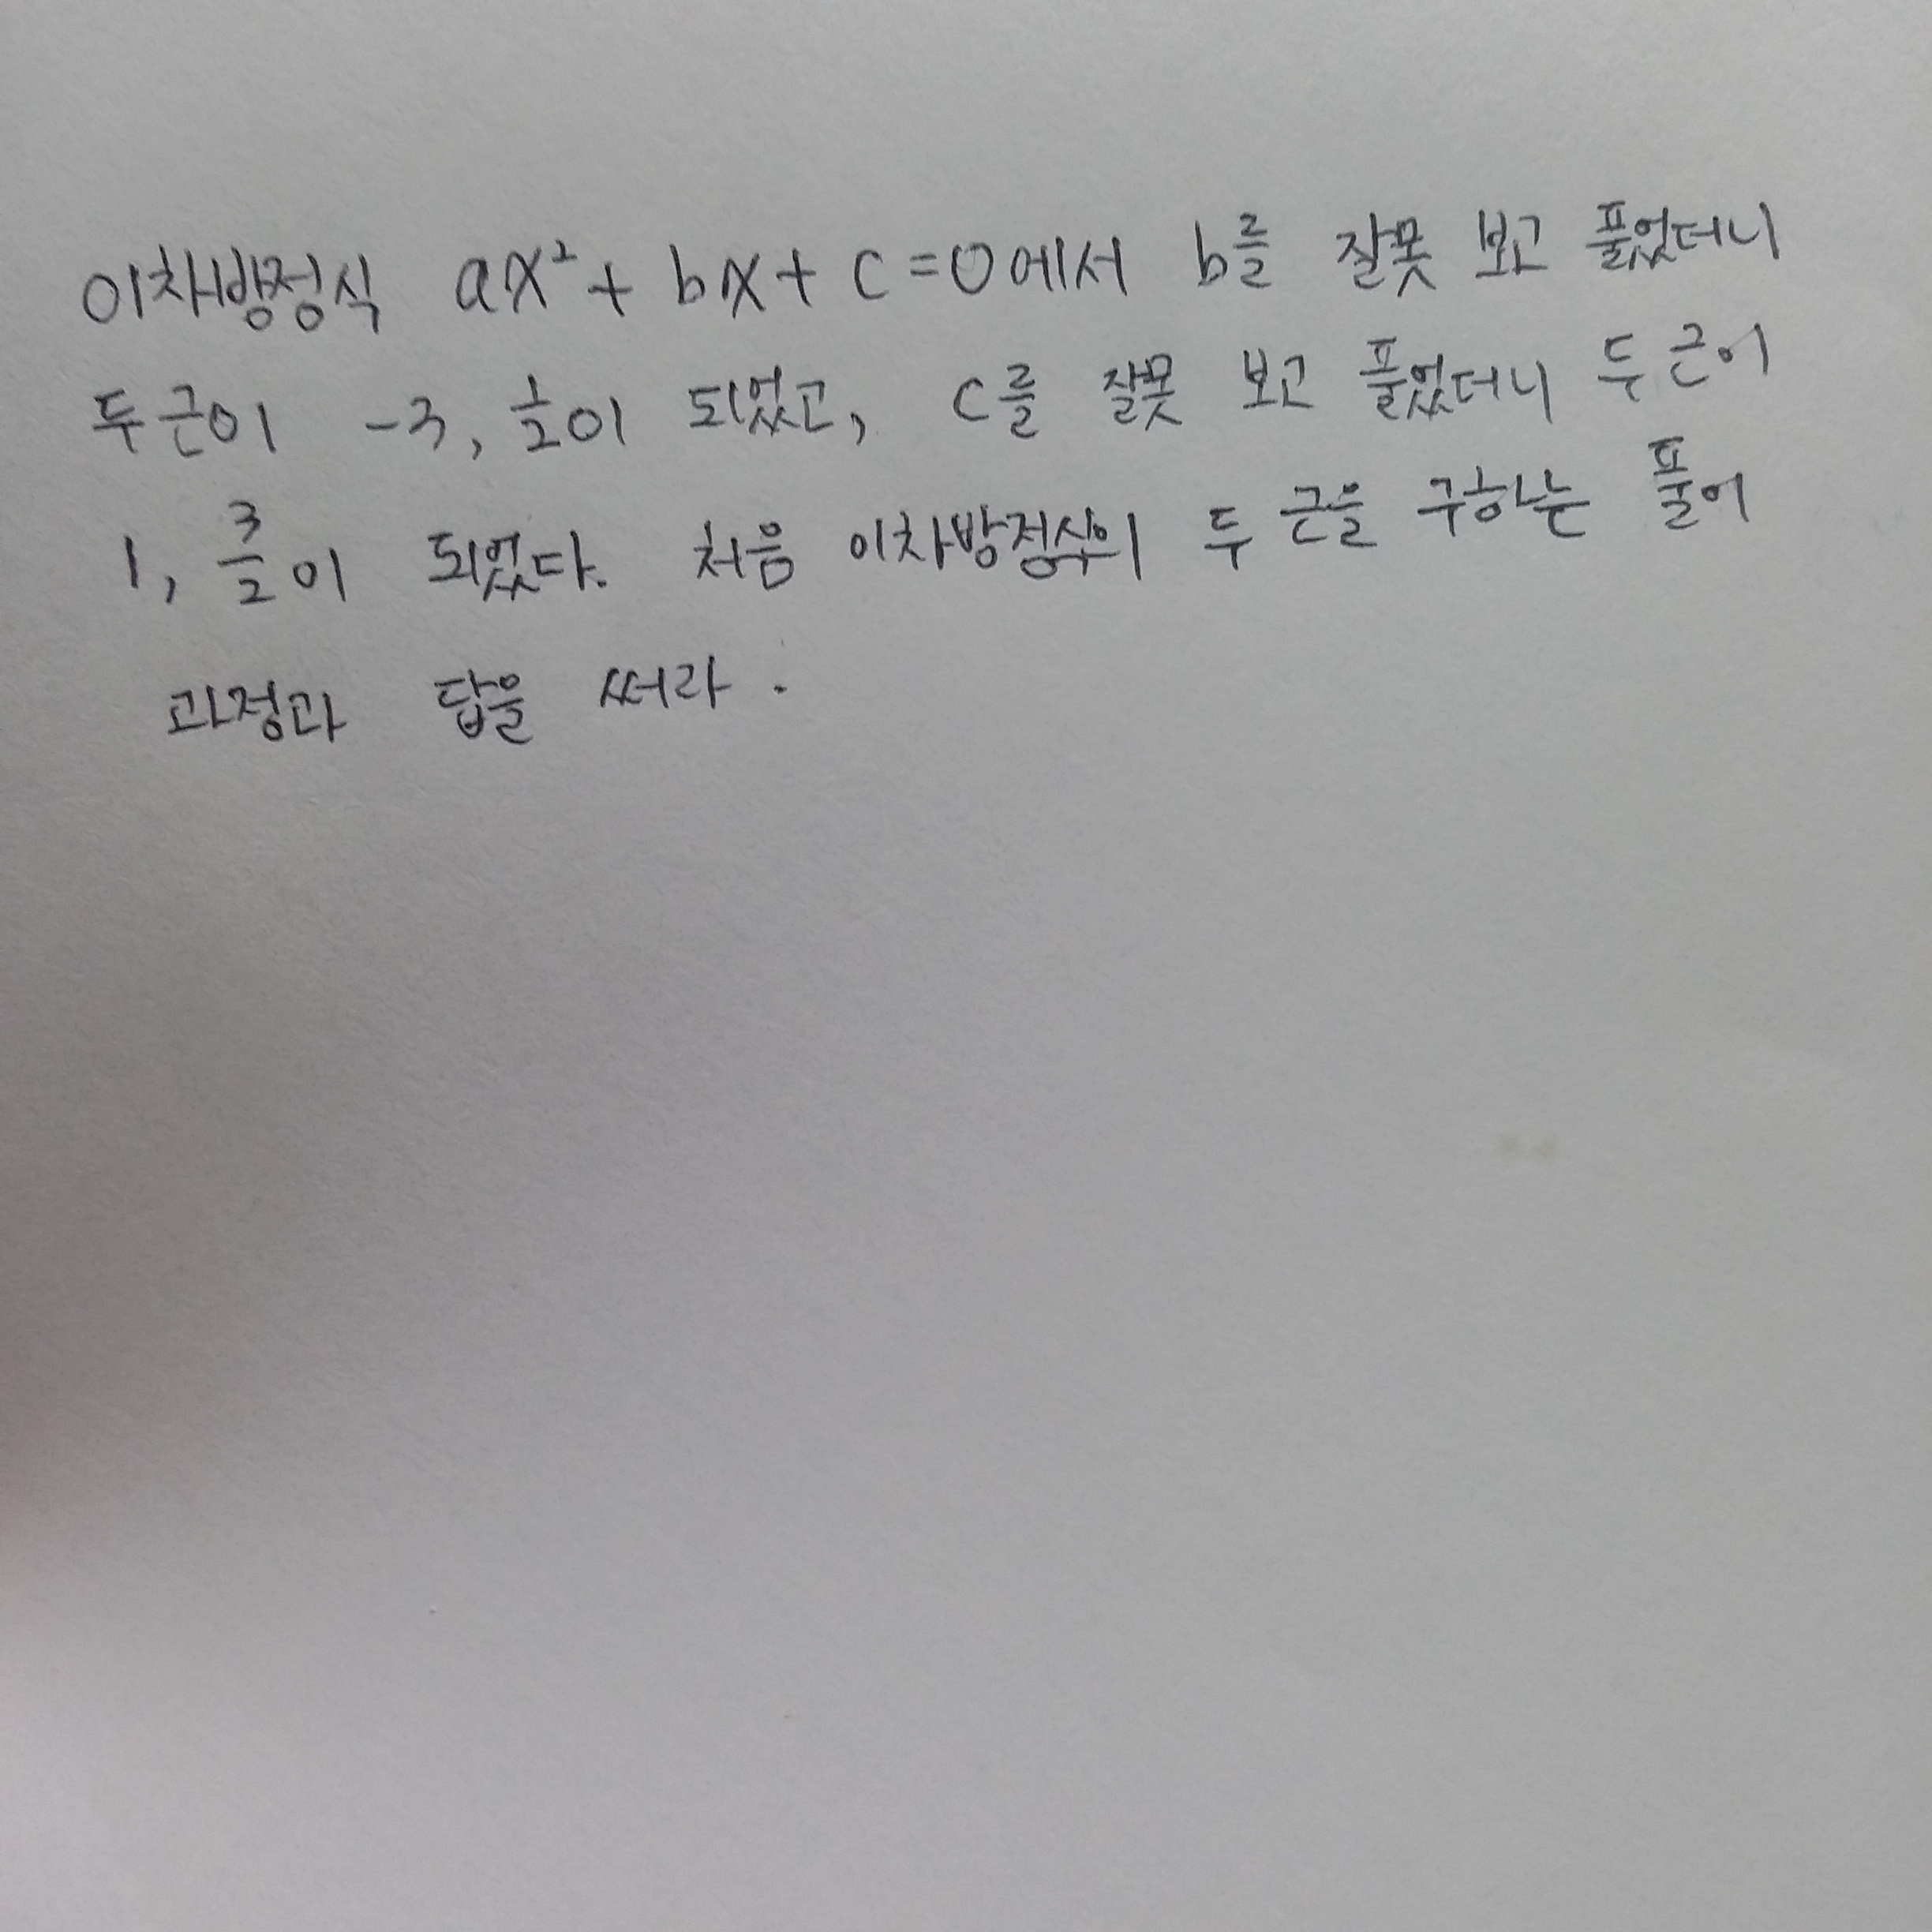 이차방정식 ax² + bx + c = 0에서 b를 잘못 보고 풀었더니
두 근이 -3, 1/2이 되었고, c를 잘못 보고 풀었더니 두 근이
1, 3/2이 되었다. 처음 이차방정식의 두 근을 구하는 풀이
과정과 답을 써라.